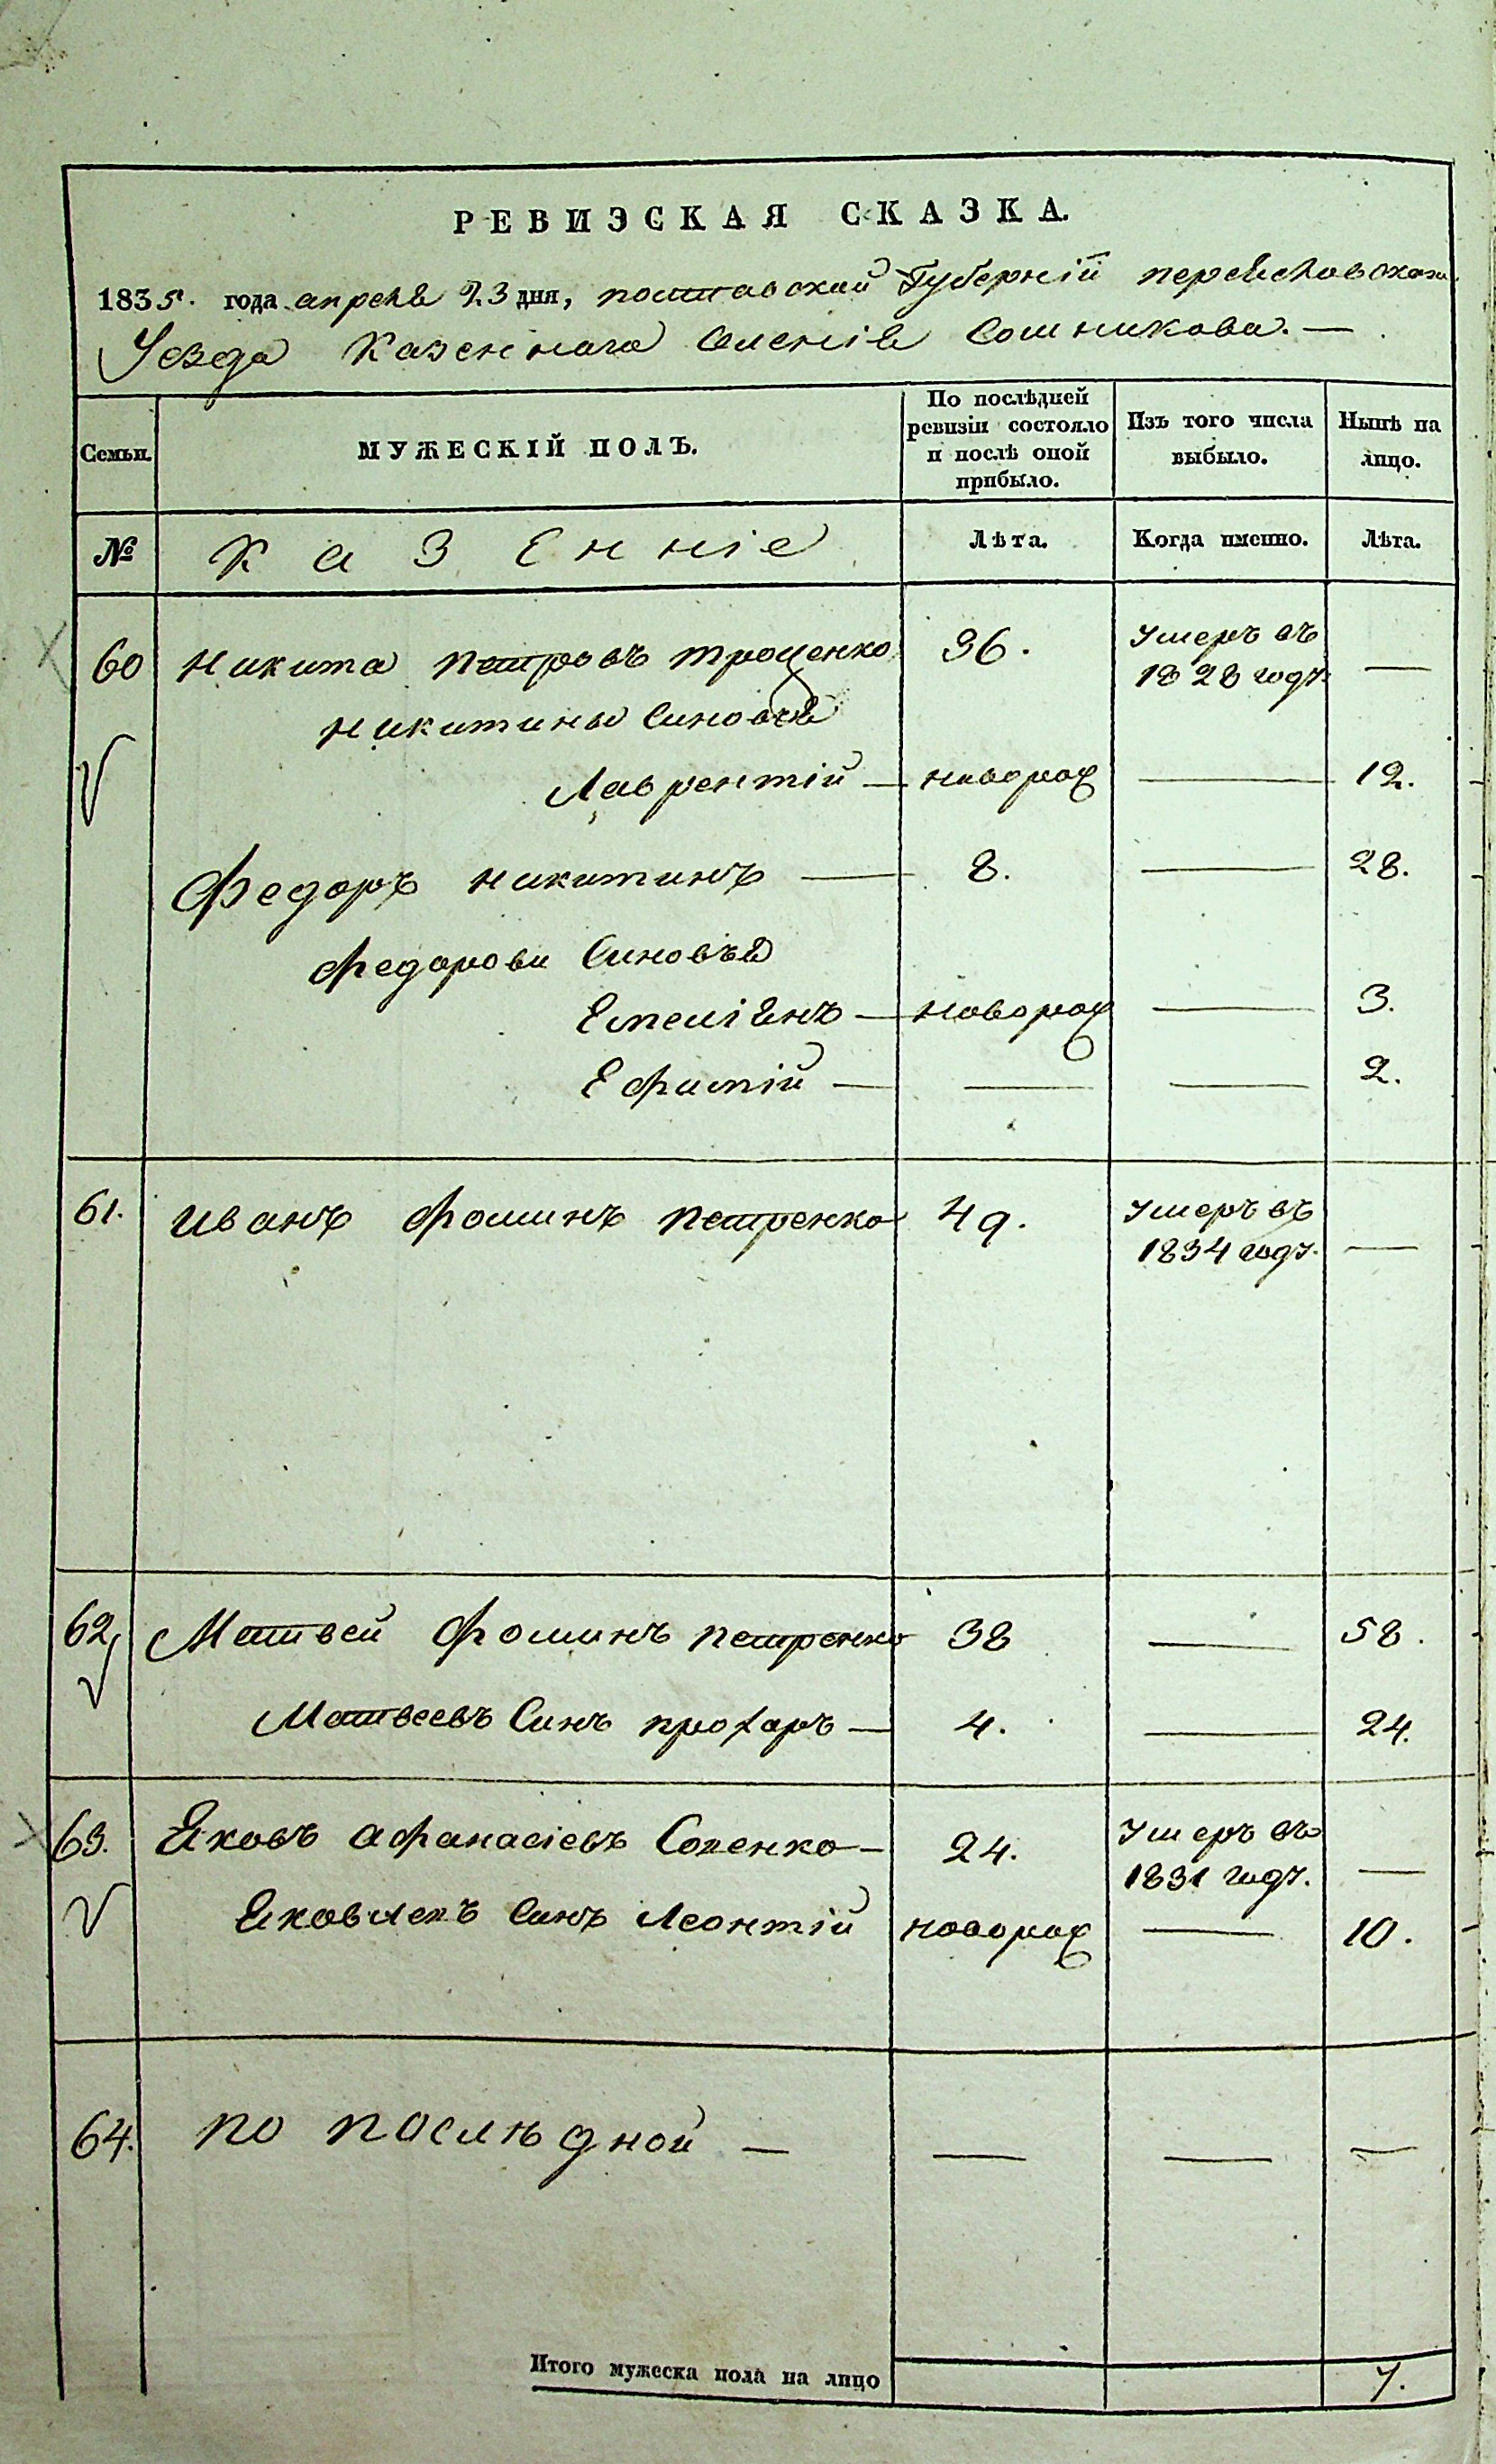 РЕВИЗСКАЯ СКАЗКА.
1835. года апреля 23 дня, полтавской Губерніи переяславскаго
Уезда Казеннаго Именія Сошникова. —
Семьи. МУЖЕСКІЙ ПОЛЪ. По послѣдней ревизіи состояло и послѣ оной прибыло. Изъ того числа выбыло. Нынѣ на лицо.
№ Казенніе Лѣта. Когда именно. Лѣта.
60 Никита петровъ троценко 36. Умеръ въ 1828 году. —
Никитины Синовья
Лаврентій — новорож — 12.
Федоръ Никитинъ — 8. — 28.
Федорови Синовья
Емеліянъ — новорож — 3.
Ефимій — — — 2.
61. Иванъ Фоминъ петренко 49. Умеръ въ 1834 году. —
62 Матвей Фоминъ петренко 38 — 58.
Матвеевъ Синъ прохоръ — 4. — 24.
63. Яковъ Афанасіевъ Сопенко — 24. Умеръ въ 1831 году. —
Яковлевъ Синъ Леонтій новорож — 10.
64. по послѣдной — — — —
Итого мужеска пола на лицо 7.